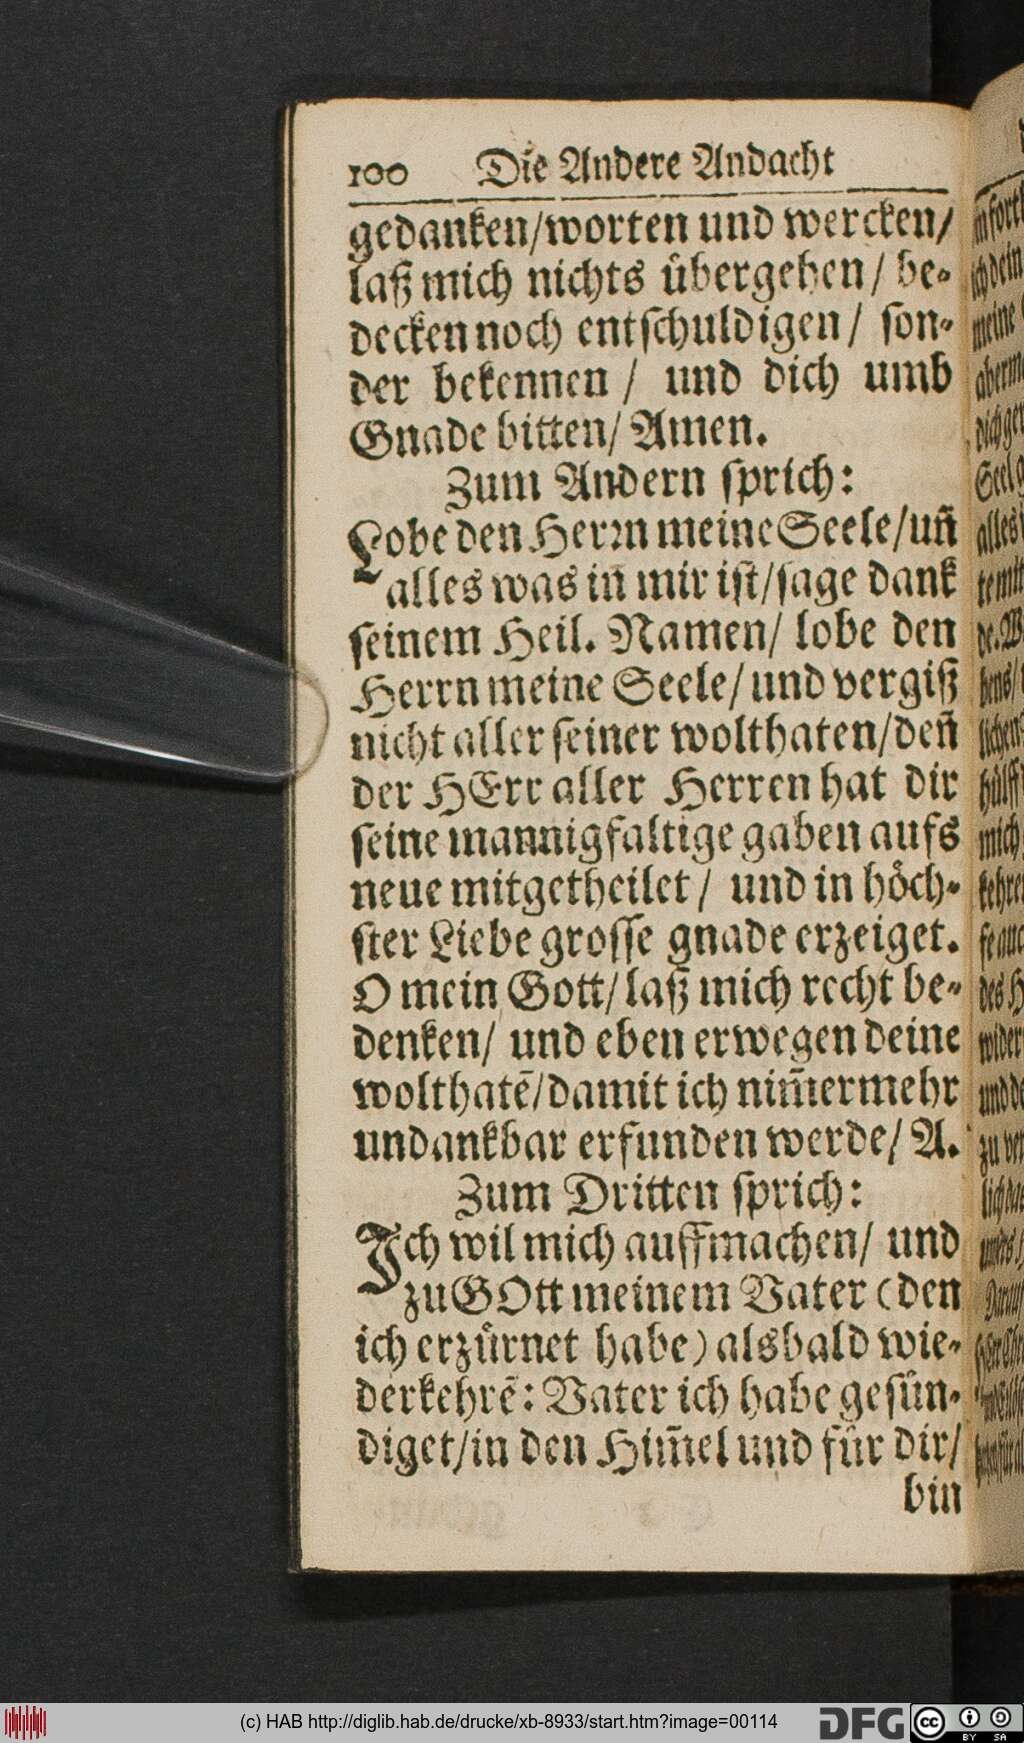 100 Die Andere Andacht
gedanken/worten und wercken/
laß mich nichts übergehen/ be-
decken noch entschuldigen/ son-
der bekennen / und dich umb
Gnade bitten/ Amen.
Zum Andern sprich:
Lobe den Herrn meine Seele/uñ
alles was in mir ist/sage dank
seinem Heil. Namen/ lobe den
Herrn meine Seele/und vergiß
nicht aller seiner wolthaten/deñ
der HErr aller Herren hat dir
seine mannigfaltige gaben aufs
neue mitgetheilet/ und in höch-
ster Liebe grosse gnade erzeiget.
O mein Gott/laß mich recht be-
denken/ und eben erwegen deine
wolthatē/damit ich nim̄ermehr
undankbar erfunden werde/ A.
Zum Dritten sprich:
Ich wil mich auffmachen/ und
zu GOtt meinem Vater (den
ich erzürnet habe) alsbald wie-
derkehrē: Vater ich habe gesün-
diget/in den Him̄el und für dir/
bin
(c) HAB http://diglib.hab.de/drucke/xb-8933/start.htm?image=00114
DFG
cc BY SA